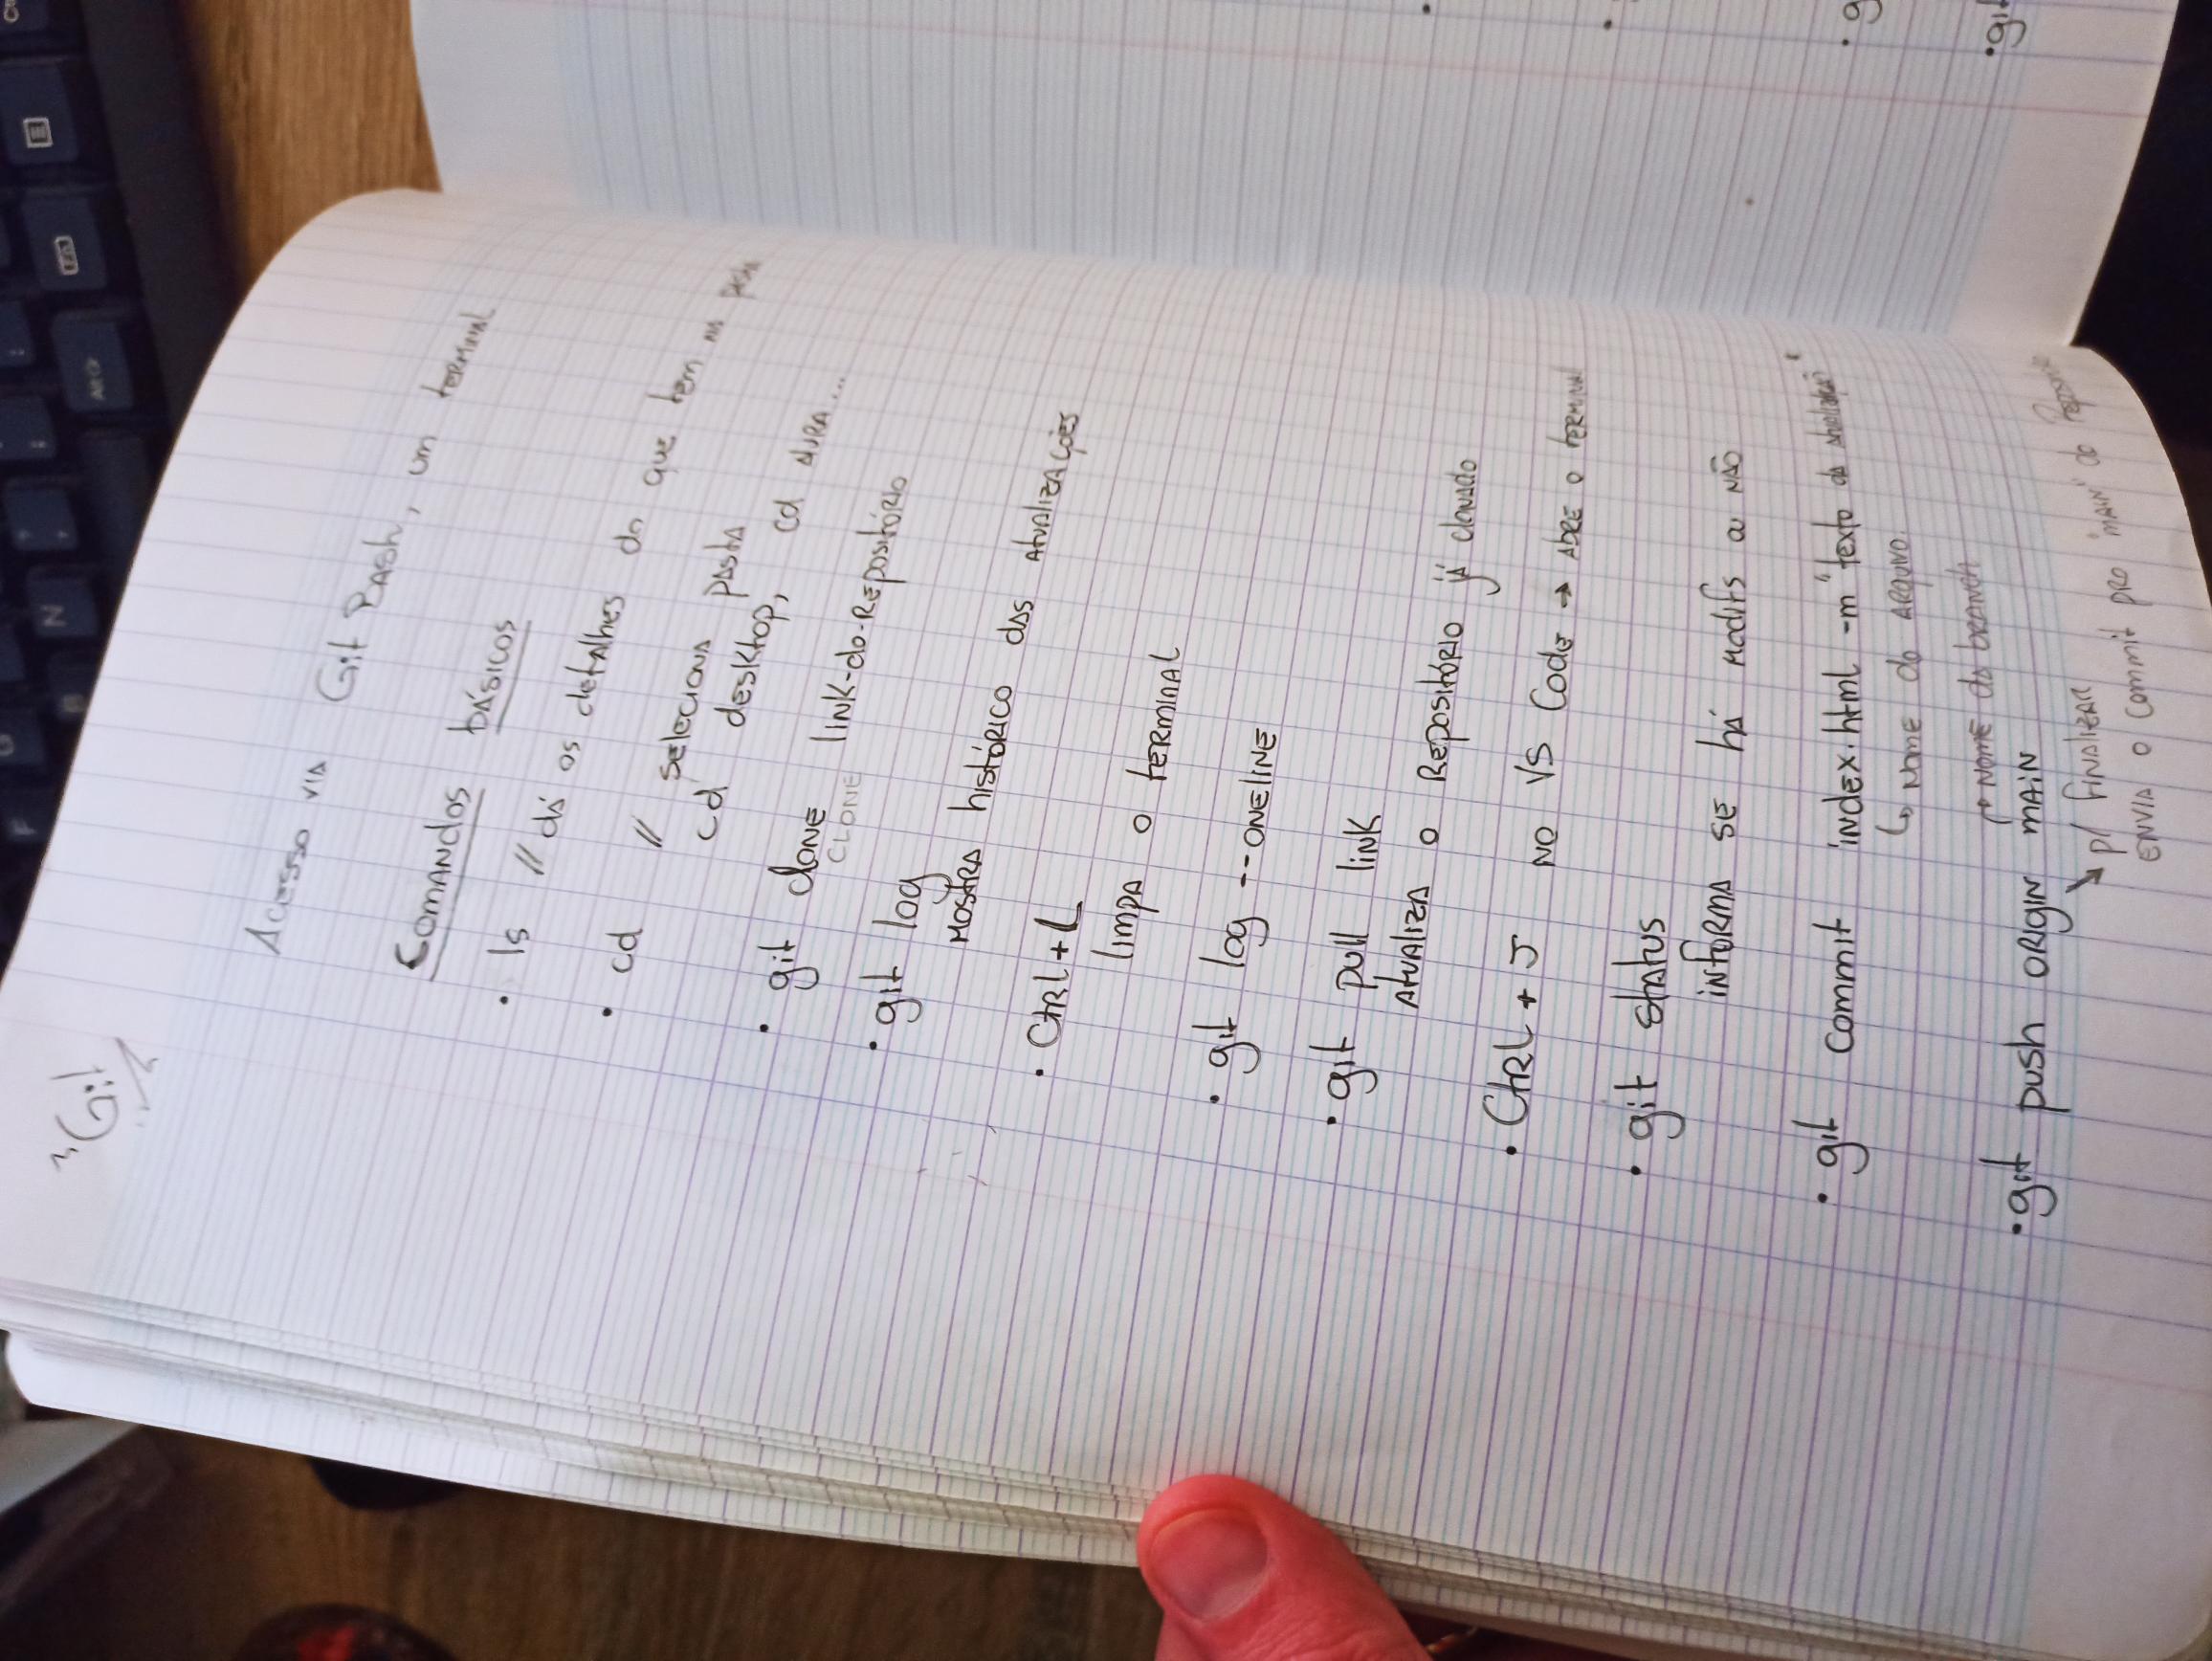 Git
Acesso via Git Bash, um terminal
Comandos básicos
• ls // dá os detalhes do que tem na pasta
• cd // seleciona pasta
cd desktop, cd
• git clone link-do-repositório
CLONE
• git log
mostra histórico das atualizações
• Ctrl + L
limpa o terminal
• git log --oneline
• git pull link
atualiza o repositório já clonado
• Ctrl + J no VS Code → abre o terminal
• git status
informa se há modifs ou não
• git commit index.html -m "texto da atualização"
↳ nome do arquivo.
↱ nome da branch
• git push origin main
↘ p/ finalizar
envia o commit pro "main" do
• g
• git